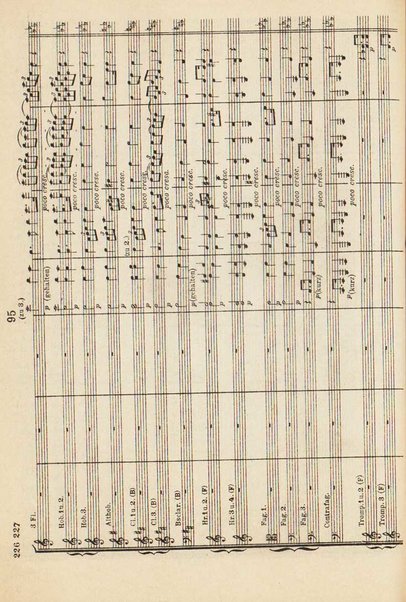 226 227
95
(zu 3.)
3 Fl.
p (gehalten)
poco cresc.
Hob. 1 u. 2.
p
poco cresc.
Hob. 3.
p
poco cresc.
Althob.
p
poco cresc.
(zu 2.)
Cl. 1 u. 2. (B)
p
poco cresc.
Cl. 3. (B)
p
poco cresc.
Bsclar. (B)
p (gehalten)
poco cresc.
Hr. 1 u. 2. (F)
p
poco cresc.
Hr. 3 u. 4. (F)
p
poco cresc.
Fag. 1.
p
poco cresc.
Fag. 2.
p
poco cresc.
Fag. 3.
p (kurz)
poco cresc.
Contrafag.
p (kurz)
poco cresc.
Tromp. 1 u. 2. (F)
p
Tromp. 3 (F)
p